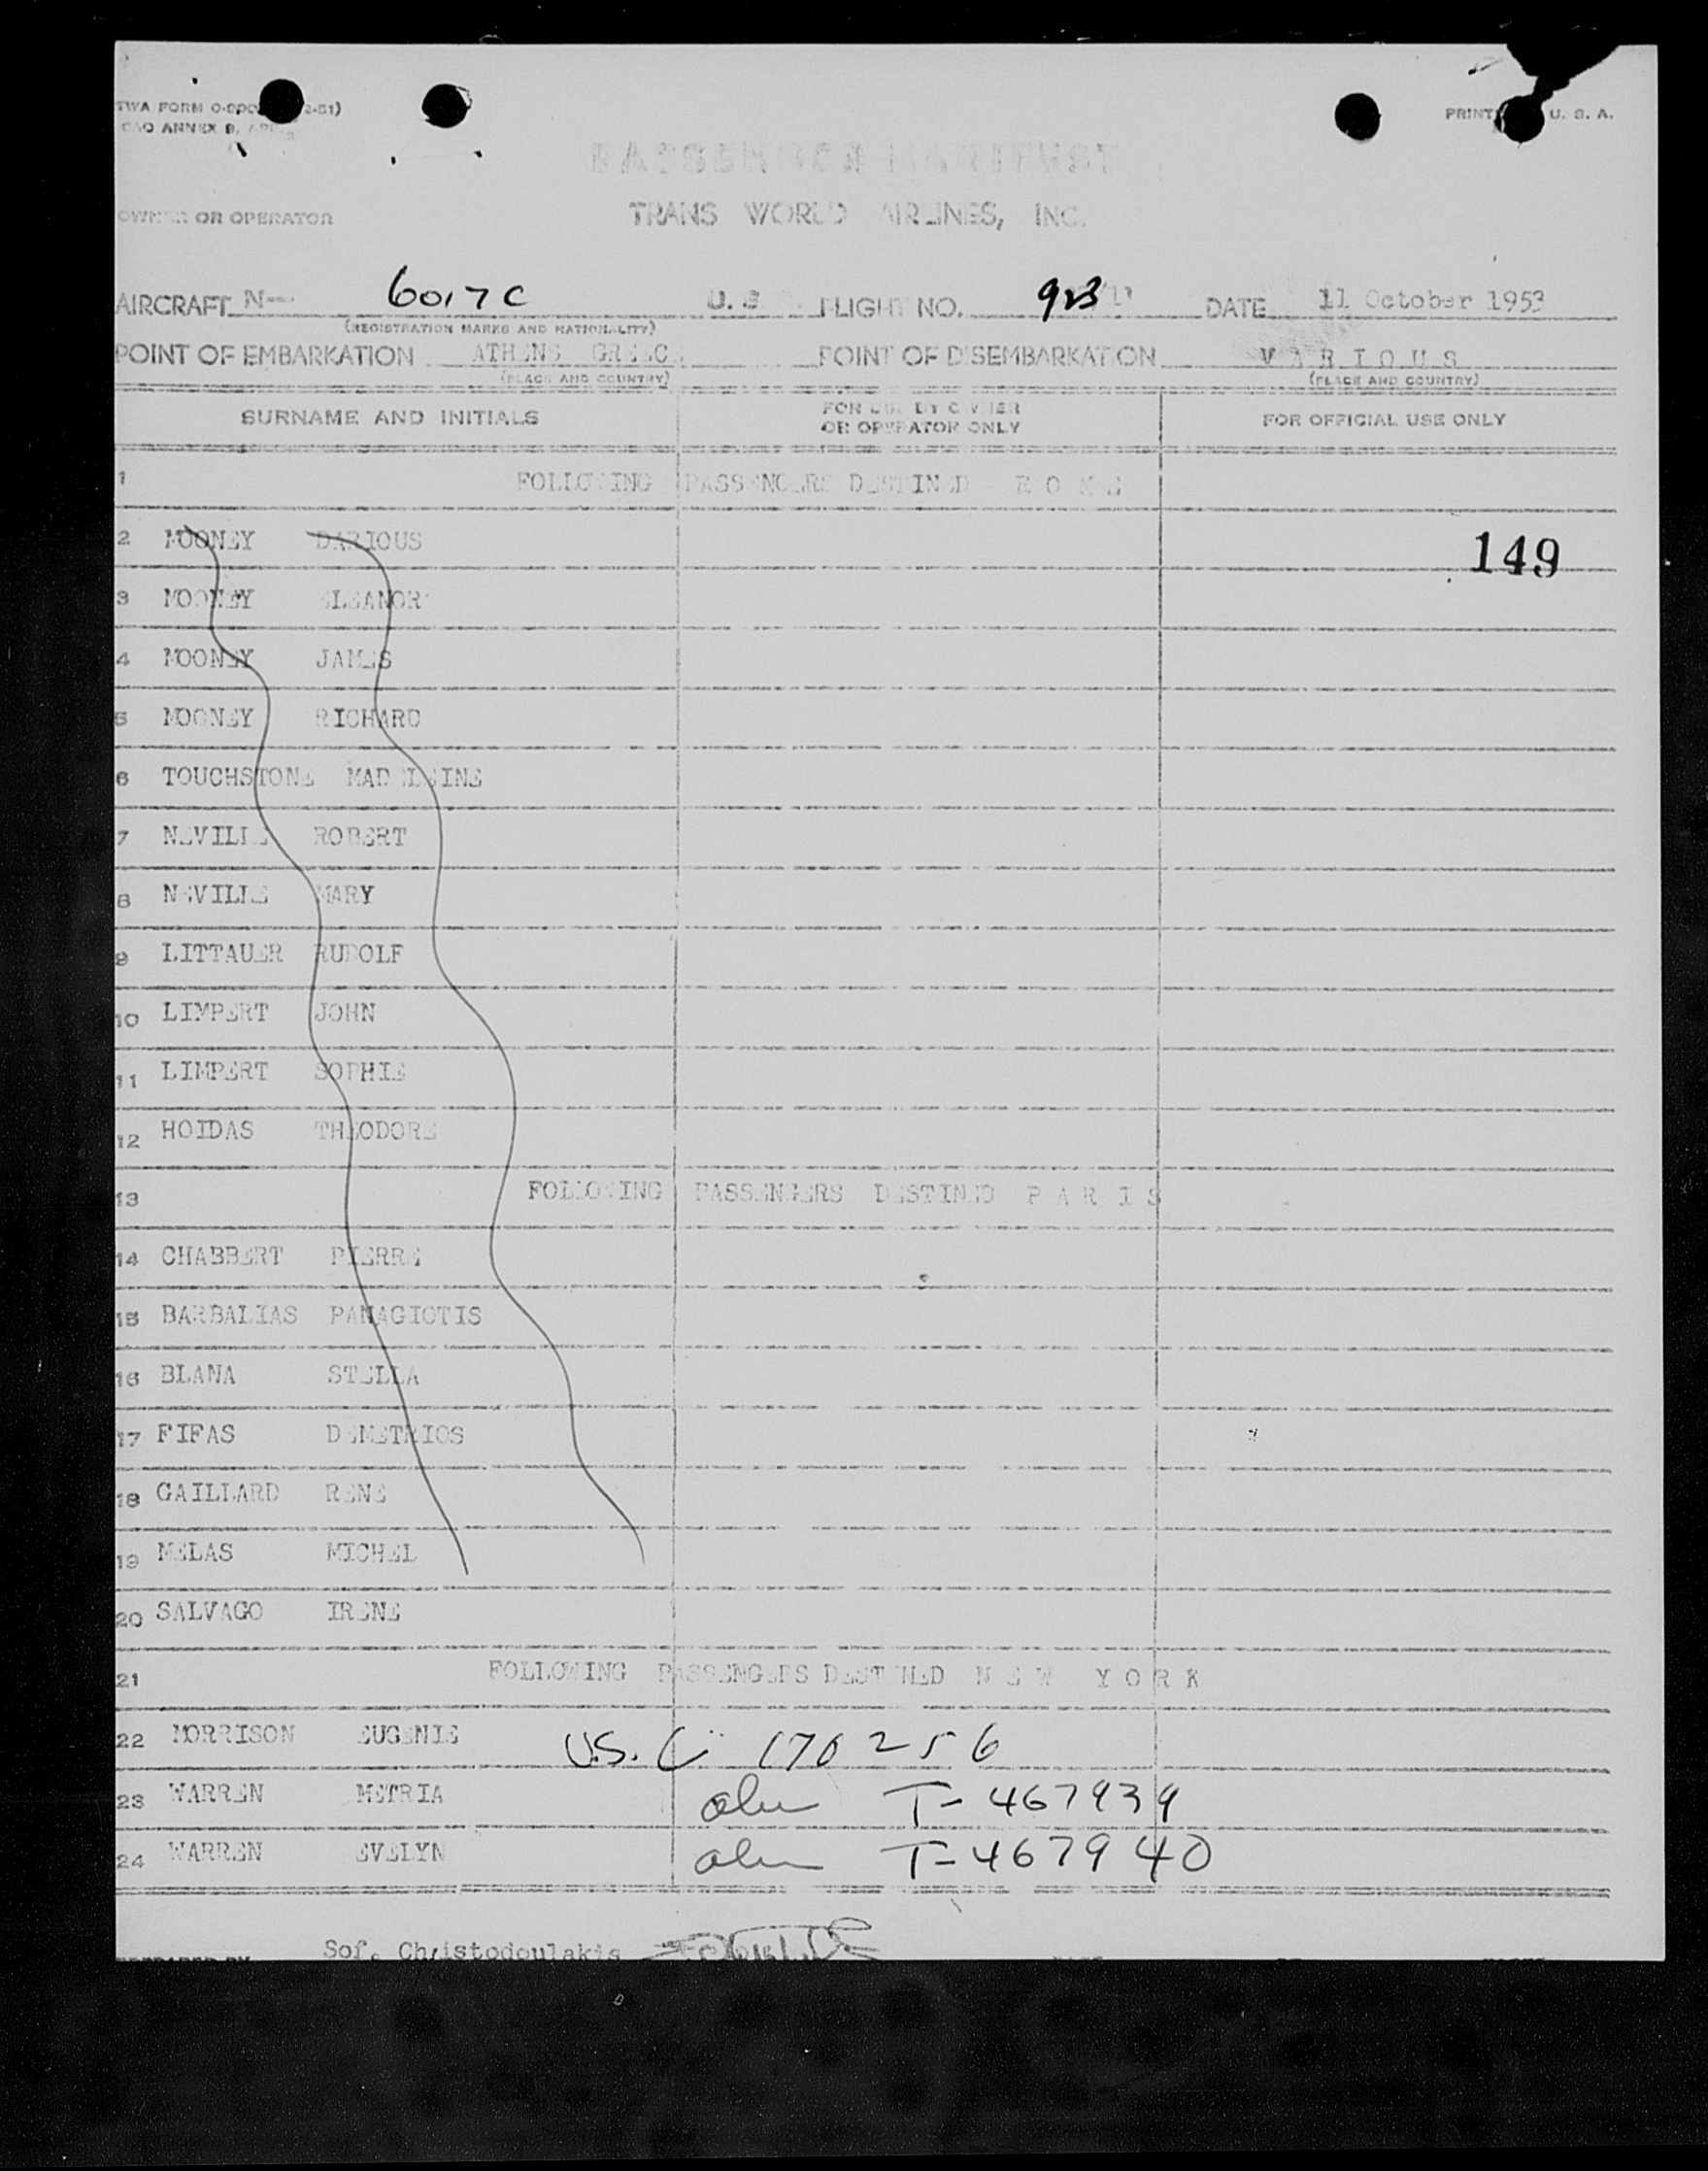 TWA FORM 2-51)
ANNEX 9,
PRINT U. S. A.
PASSENGER MANIFEST
OWNER OR OPERATOR TRANS WORLD AIRLINES, INC.
AIRCRAFT N-- 6017C U. S. FLIGHT NO. 923 DATE 11 October 1953
(REGISTRATION MARKS AND NATIONALITY)
POINT OF EMBARKATION ATHENS GREECE POINT OF DISEMBARKATION V A R I O U S
(PLACE AND COUNTRY) (PLACE AND COUNTRY)
SURNAME AND INITIALS FOR USE BY OWNER OR OPERATOR ONLY FOR OFFICIAL USE ONLY
1 FOLLOWING PASSENGERS DESTINED R O M E
2 MOONEY DARIOUS 149
3 MOONEY ELEANOR
4 MOONEY JAMES
5 MOONEY RICHARD
6 TOUCHSTONE MADELEINE
7 NEVILLE ROBERT
8 NEVILLE MARY
9 LITTAUER RUDOLF
10 LIMPERT JOHN
11 LIMPERT SOPHIE
12 HOIDAS THEODORE
13 FOLLOWING PASSENGERS DESTINED P A R I S
14 CHABBERT PIERRE
15 BARBALIAS PANAGIOTIS
16 BLANA STELLA
17 FIFAS DEMETRIOS
18 GAILLARD RENE
19 MELAS MICHEL
20 SALVAGO IRENE
21 FOLLOWING PASSENGERS DESTINED N E W Y O R K
22 MORRISON EUGENIE U.S. C 170256
23 WARREN METRIA T-467939
24 WARREN EVELYN T-467940
PREPARED BY Sof. Christodoulakis